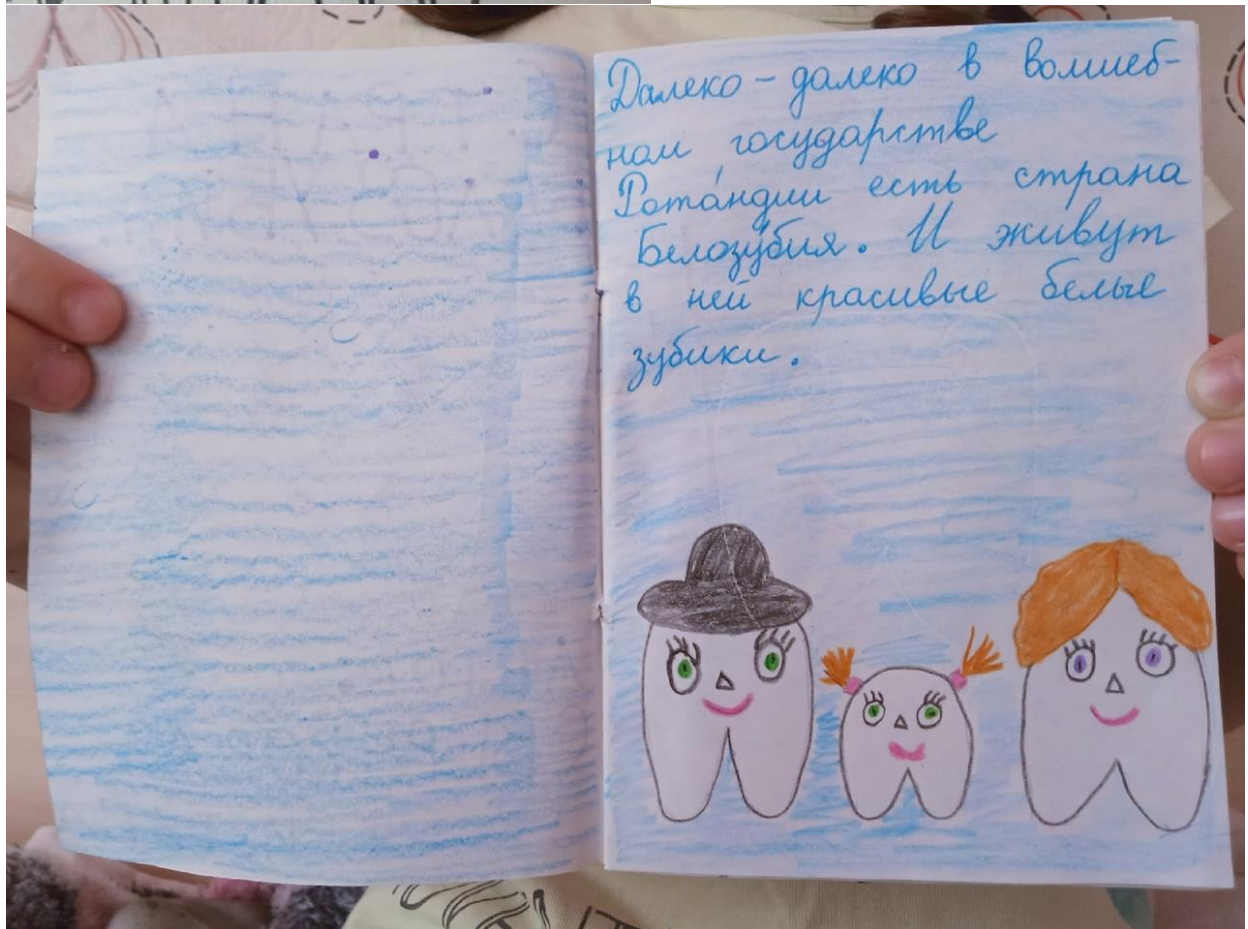 Далеко-далеко в волшеб-
ном государстве
Рота́ндии есть страна
Белозу́бия. И живут
в ней красивые белые
зубики.